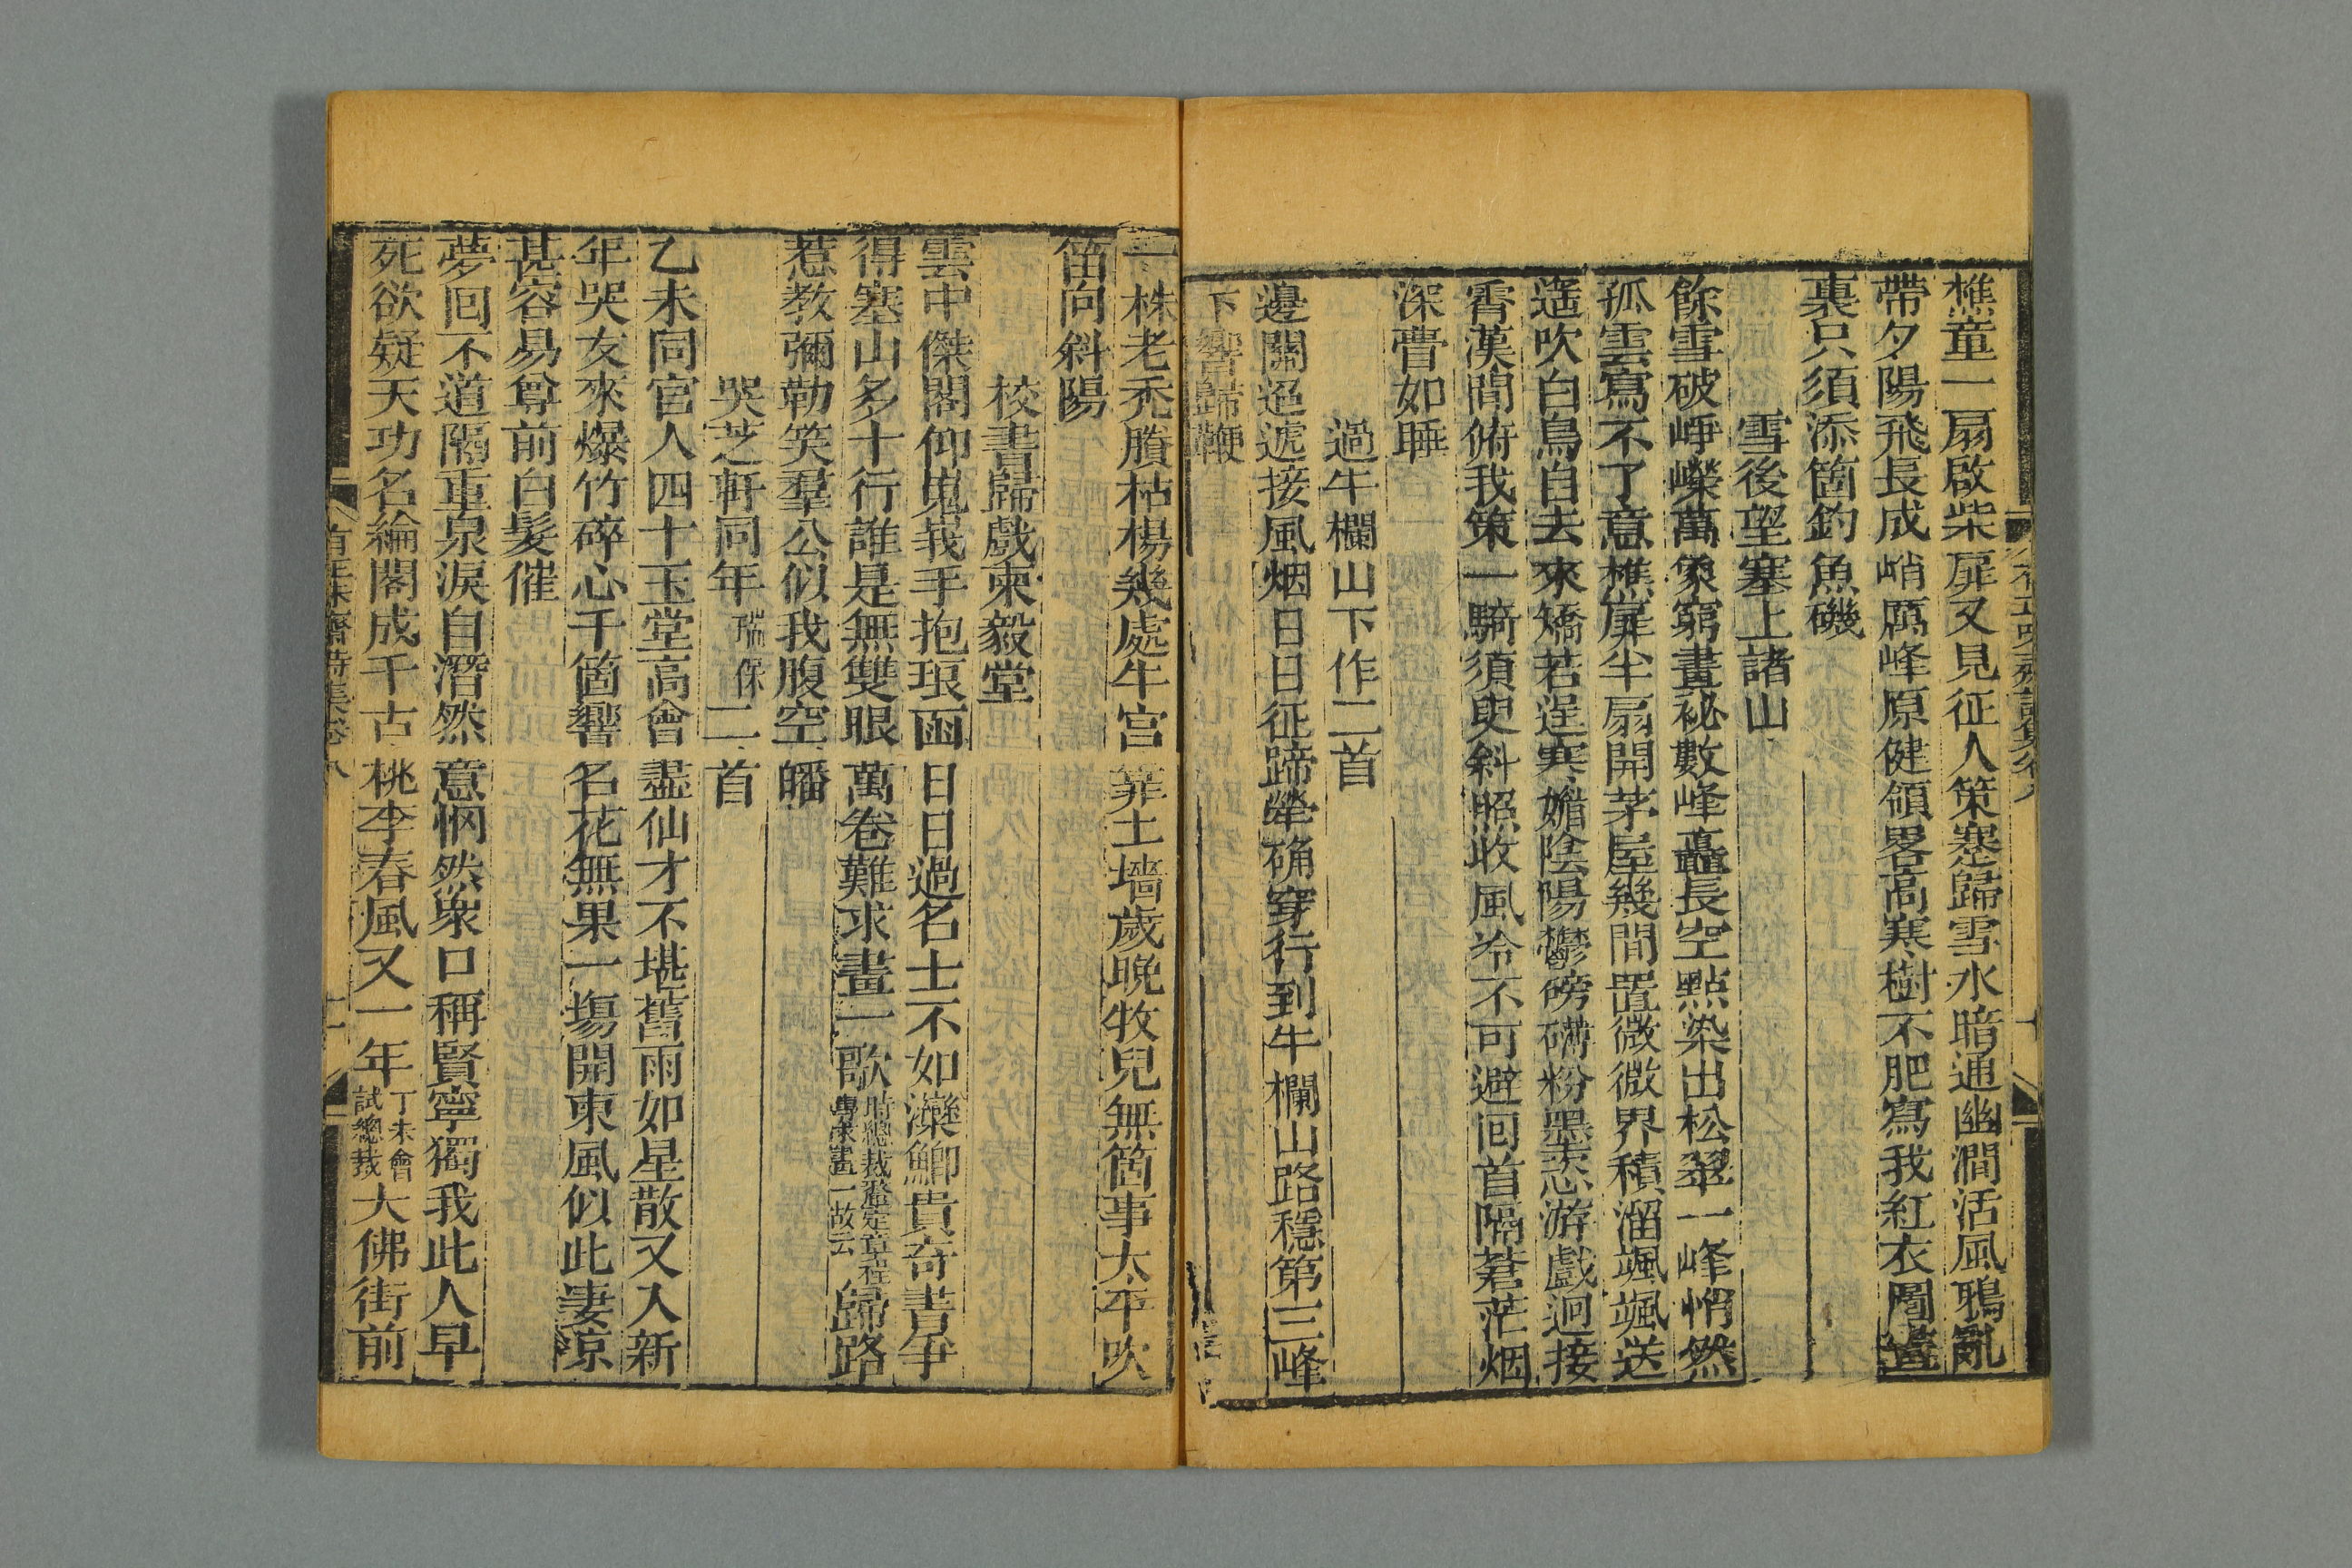 樵童一扇啟柴扉又見征人策蹇歸雪水暗通幽澗活風鴉亂
帶夕陽飛長成峭厲峰原健領畧高寒樹不肥寫我紅衣圖畫
裏只須添箇釣魚磯
雪後望塞上諸山
餘雪破崢嶸萬象窮畫祕數峰矗長空點染出松翠一峰悄然
孤雲寫不了意樵扉半扇開茅屋幾間置微微界積溜颯颯送
遥吹白鳥自去來矯若逞寒媚陰陽鬱磅礴粉墨恣游戲迴接
霄漢間俯我策一騎須臾斜照收風冷不可避回首隔蒼茫烟
深瞢如睡
過牛欄山下作二首
邊關迢遞接風烟日日征蹄犖确穿行到牛欄山路穩第三峰
下響歸鞭
一株老禿賸枯楊幾處牛宮筚土墻歲晚牧兒無箇事太平吹
笛向斜陽
校書歸戲柬毅堂
雲中傑閣仰嵬峩手抱琅函日日過名士不如灤鯽貴奇書爭
得塞山多十行誰是無雙眼萬卷難求畫一歌時總裁釐定章程
專求畫一故云歸路
惹教彌勒笑羣公似我腹空皤
哭芝軒同年瑞保二首
乙未同官人四十玉堂高會盡仙才不堪舊雨如星散又入新
年哭友來爆竹碎心千箇響名花無果一塲開東風似此淒涼
甚容易尊前白髮催
夢回不道隔重泉淚自潛然意惘然衆口稱賢寧獨我此人早
死欲疑天功名綸閣成千古桃李春風又一年丁未會
試總裁大佛街前
有正味齋詩集卷八
十一